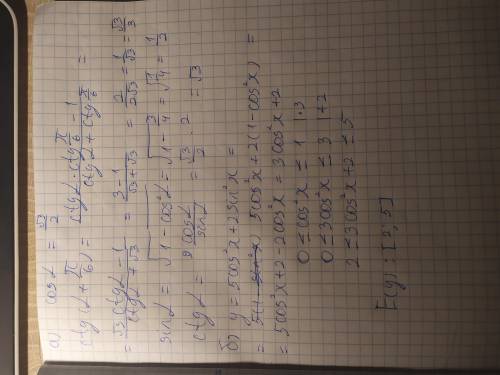 а) cos α = √3/2
ctg(α + π/6) = (ctg α · ctg π/6 − 1)/(ctg α + ctg π/6) =
= (√3 ctg α − 1)/(ctg α + √3) = (3 − 1)/(√3 + √3) = 2/(2√3) = 1/√3 = √3/3
sin α = √(1 − cos²α) = √(1 − 3/4) = √(1/4) = 1/2
ctg α = cos α/sin α = √3/2 · 2 = √3
б) y = 5cos²x + 2sin²x =
= 5cos²x + 2(1 − cos²x) =
= 5cos²x + 2 − 2cos²x = 3cos²x + 2
0 ≤ cos²x ≤ 1 | ·3
0 ≤ 3cos²x ≤ 3 | +2
2 ≤ 3cos²x + 2 ≤ 5
E(y): [2; 5]